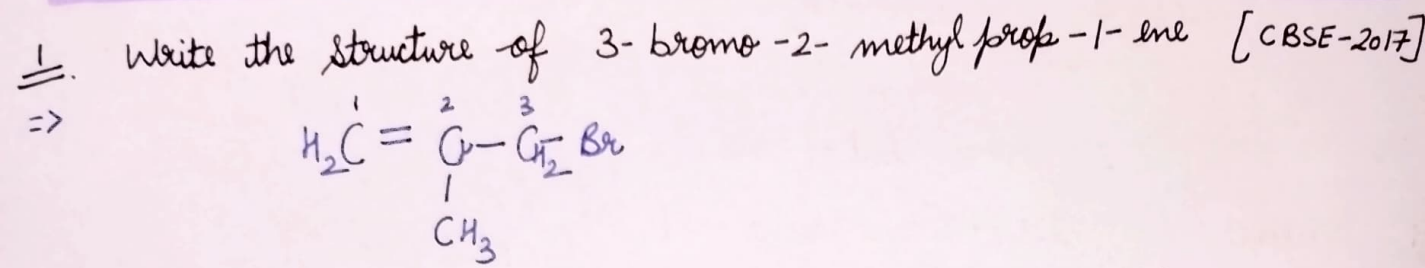 1. Write the structure of 3-bromo-2-methylprop-1-ene [CBSE-2017]
=> 1 2 3
H2C = C - CH2 - Br
|
CH3